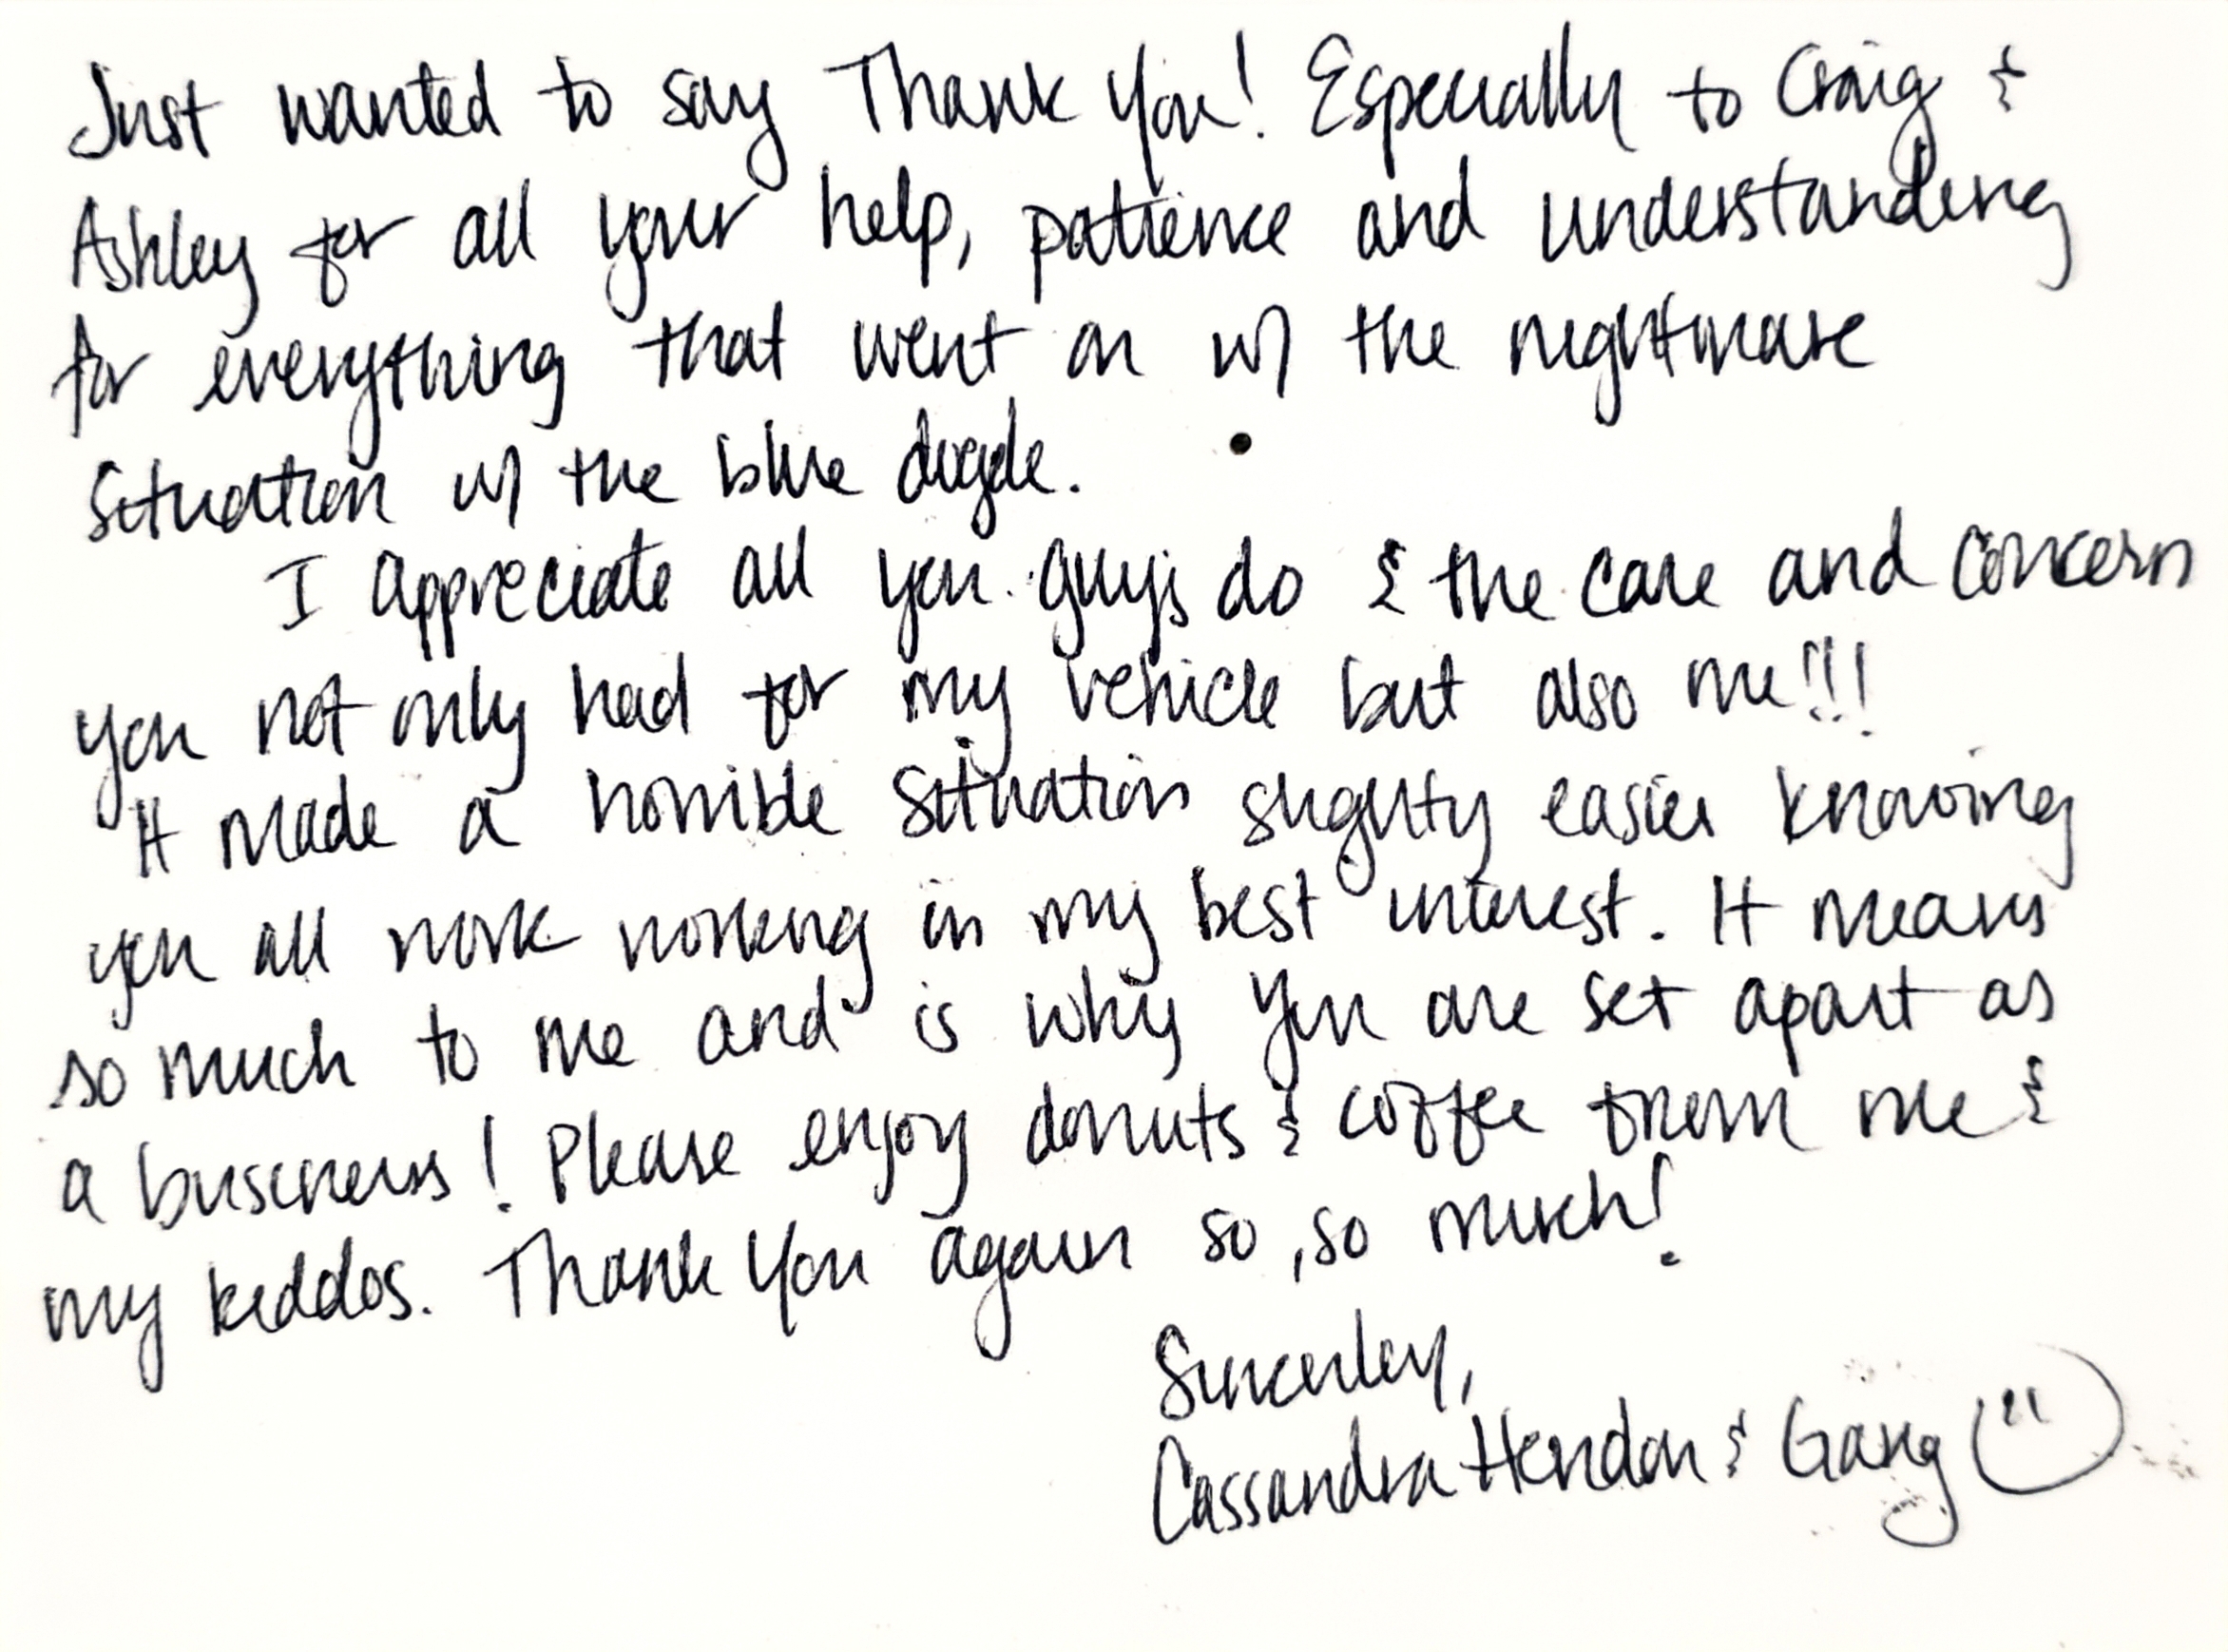 Just wanted to say Thank You! Especially to Craig &
Ashley for all your help, patience and understanding
for everything that went on w/ the nightmare
situation w/ the blue dodge.
I appreciate all you guys do & the care and concern
you not only had for my vehicle but also me!!!
It made a horrible situation slighty easier knowing
you all work working in my best interest. It means
so much to me and is why you are set apart as
a business! Please enjoy donuts & coffee from me &
my kiddos. Thank You again so, so much!
Sincerley,
Cassandra Hendon & Gang